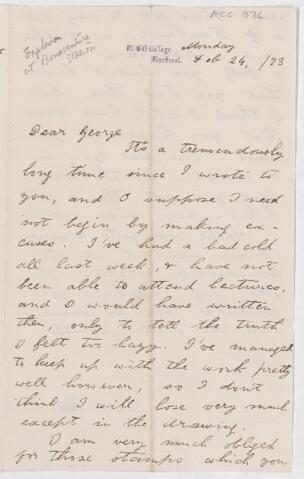 ACC 976
Explosion
at Bonaventure
Station
McGill College,
Montreal.
Monday
Feb 24, /73
Dear George
It's a tremendously
long time since I wrote to
you, and I suppose I need
not begin by making ex-
cuses. I've had a bad cold
all last week, & have not
been able to attend lectures,
and I would have written
then, only to tell the truth
I felt too lazy. I've managed
to keep up with the work pretty
well however, so I don't
think I will lose very much
except in the drawing.
I am very much obliged
for those stamps which you